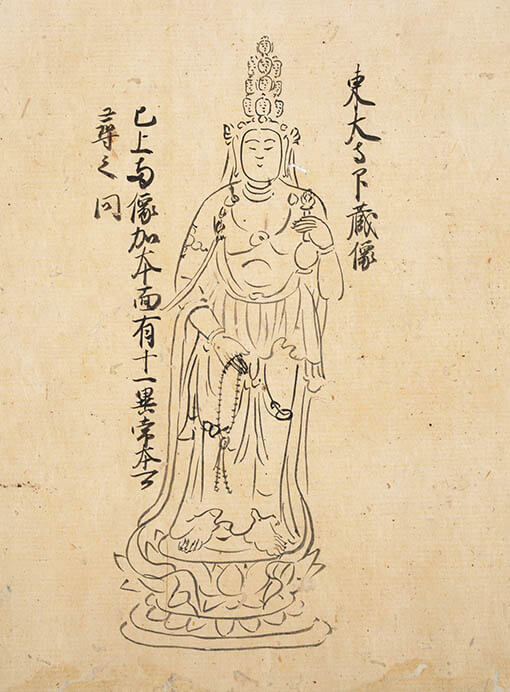 東大寺下蔵像
已上両像加本面有十一異常本可
尋之同